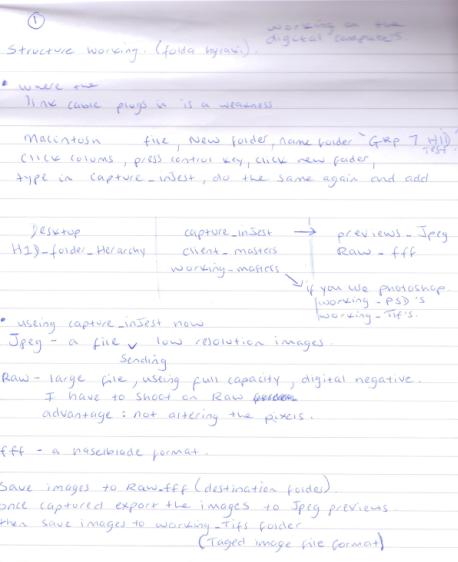 ①
working on the
digital computers.
Structure working. (folda hyraki).
• where the
link cable plugs in is a weakness
Macintosh file, New folder, name folder "GRP 7 H1D Test"
click colums, press control key, click new folder,
type in capture_inJest, do the same again and add
Desktop capture_inJest → previews_Jpeg
H1D_folder_Hierarchy client_masters Raw_fff
working_masters
if you use photoshop.
working_PSD's
working_Tif's.
• useing capture_inJest now
Jpeg - a file sending low resolution images.
Raw - large file, useing full capacity, digital negative.
I have to shoot on Raw
advantage: not altering the pixels.
fff - a haselblade format.
Save images to Raw_fff (destination folder)
once captured export the images to Jpeg previews.
then save images to working_Tifs folder
(Taged image file format)